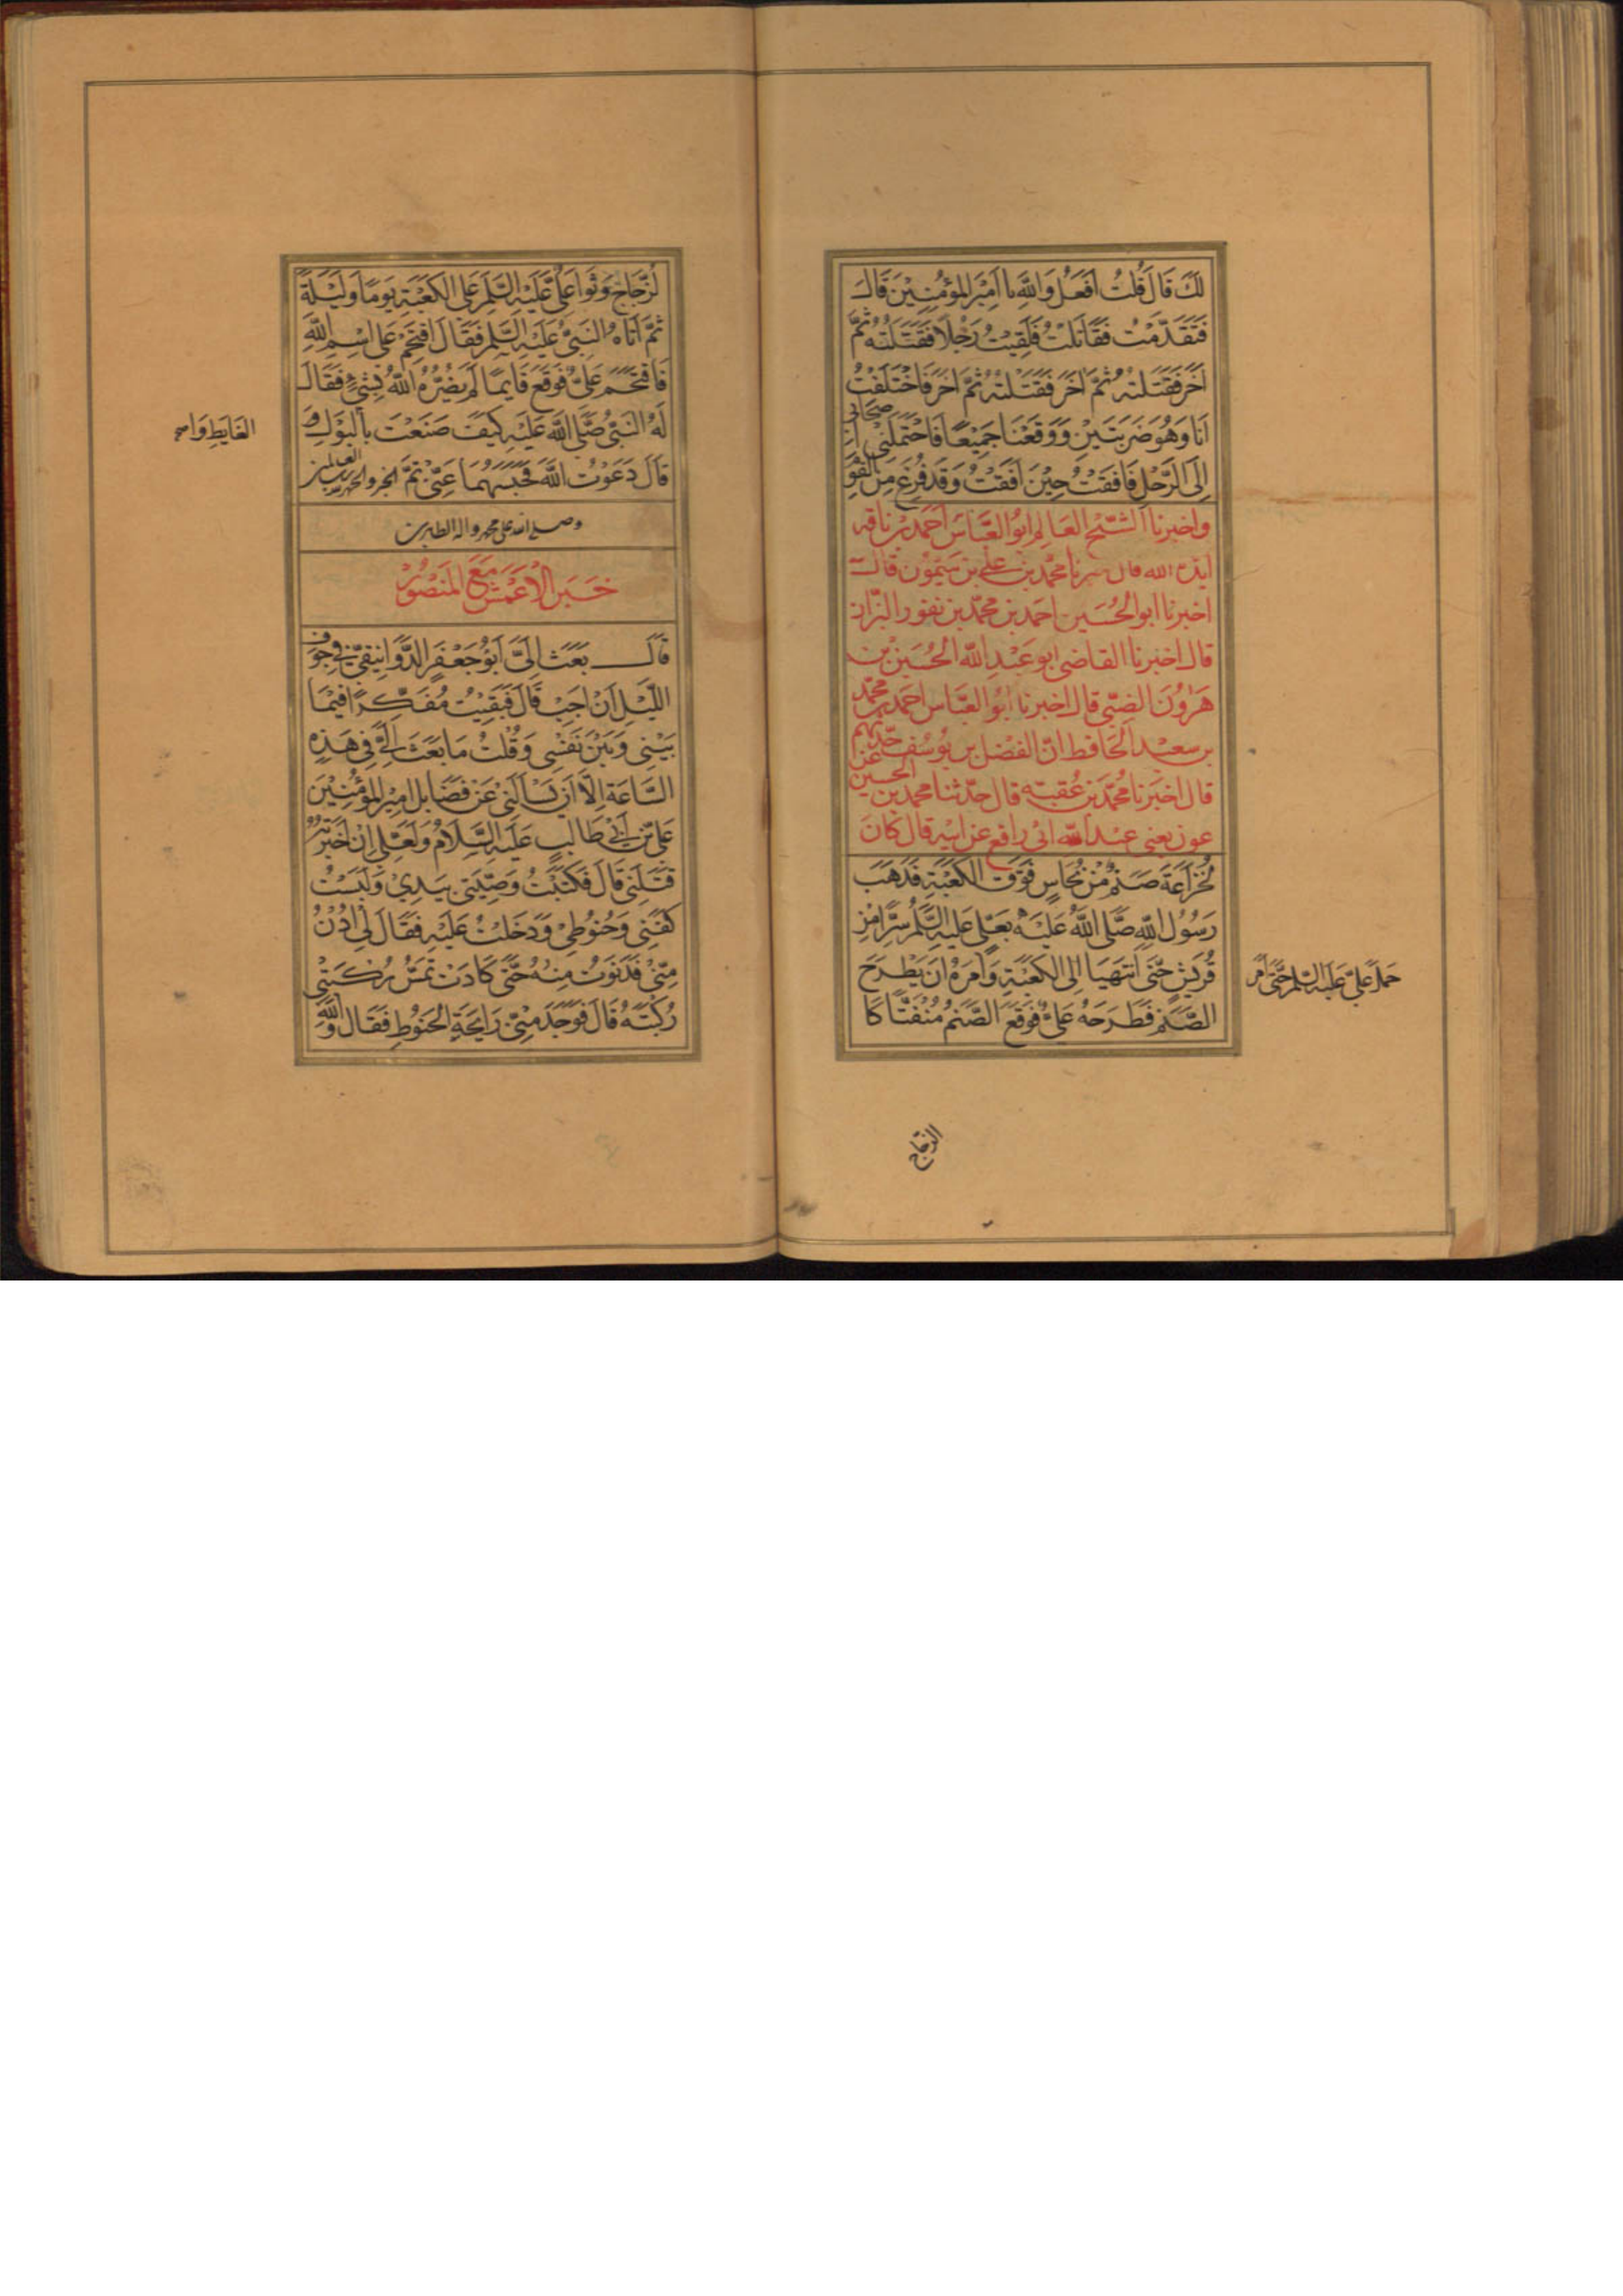 لك قال قلت افعل والله يا امير المؤمنين قال
فتقدمت فقاتلت فلقيت رجلا فقتلته ثم
اخر فقتلته ثم اخر فقتلته ثم اخر فاختلفت
انا وهو ضربتين ووقعنا جميعا فاحتملني اصحابي
الى الرحل فافقت حين افقت وقد فرغ من القوم
واخبرنا الشيخ العالم ابو العباس احمد بن ناقه
ايده الله قال اخبرنا محمد بن علي بن ميمون قال
اخبرنا ابو الحسين احمد بن محمد بن نقور البزاز
قال اخبرنا القاضي ابو عبد الله الحسين بن
هرون الضبي قال اخبرنا ابو العباس احمد بن محمد
بن سعيد الحافظ ان الفضل بن يوسف حدثهم
قال اخبرنا محمد بن عقبة قال حدثنا محمد بن الحسين عن
عون يعني عبد الله ابي رافع عن ابيه قال كان
لخزاعة صنم من نحاس فوق الكعبة فذهب
رسول الله صلى الله عليه بعلي عليه السلم سرا من
قريش حتى انتهيا الى الكعبة وامره ان يطرح
حمل علي عليه السلم حتى
الصنم فطرحه علي فوقع الصنم منفتا كا
الزجاج
لزجاج وثوا علي عليه السلم على الكعبة يوما وليلة
ثم اتاه النبي عليه السلم فقال اقتحم على اسم الله
فاقتحم علي فوقع قايما لم يضره الله بشيء فقال
له النبي صلى الله عليه كيف صنعت بالبول و
الغايط وا
قال دعوت الله فحبسهما عني تم الخبر والحمد لله رب العالمين
وصلى الله على محمد واله الطاهرين
خبر الاعمش مع المنصور
قال بعث الي ابو جعفر الدوانيقي في جوف
الليل ان اجب قال فبقيت مفكرا فيما
بيني وبين نفسي وقلت ما بعث الي في هذه
الساعة الا ان يسالني عن فضايل امير المؤمنين
علي بن ابي طالب عليه السلام ولعلي ان اخبرته
قتلني قال فكتبت وصيتي بيدي ولبست
كفني وحنوطي ودخلت عليه فقال لي ادن
مني فدنوت منه حتى كادت تمس ركبتي
ركبته قال فوجد مني رايحة الحنوط فقال والله